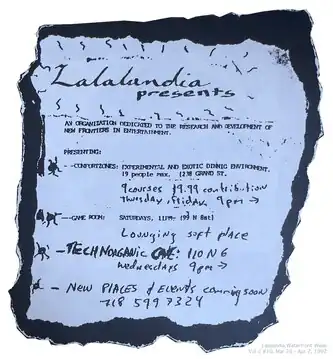 Lalalandia
presents
AN ORGANIZATION DEDICATED TO THE RESEARCH AND DEVELOPMENT OF
NEW FRONTIERS IN ENTERTAINMENT.
PRESENTING:
--COMFORTZONES: EXPERIMENTAL AND EXOTIC DINING ENVIRONMENT.
19 people max. (238 GRAND ST.
9 courses $9.99 contribution
Thursday, Friday, 9pm →
--GAME ROOM: SATURDAYS, 11PM- (99 N 8st)
Lounging soft place
-TECHNORGANIC CAVE: 110 N6
Wednesdays 9pm →
- NEW PLACES & EVENTS comming soon
718 599 7324
Lalalandia Waterfront Week